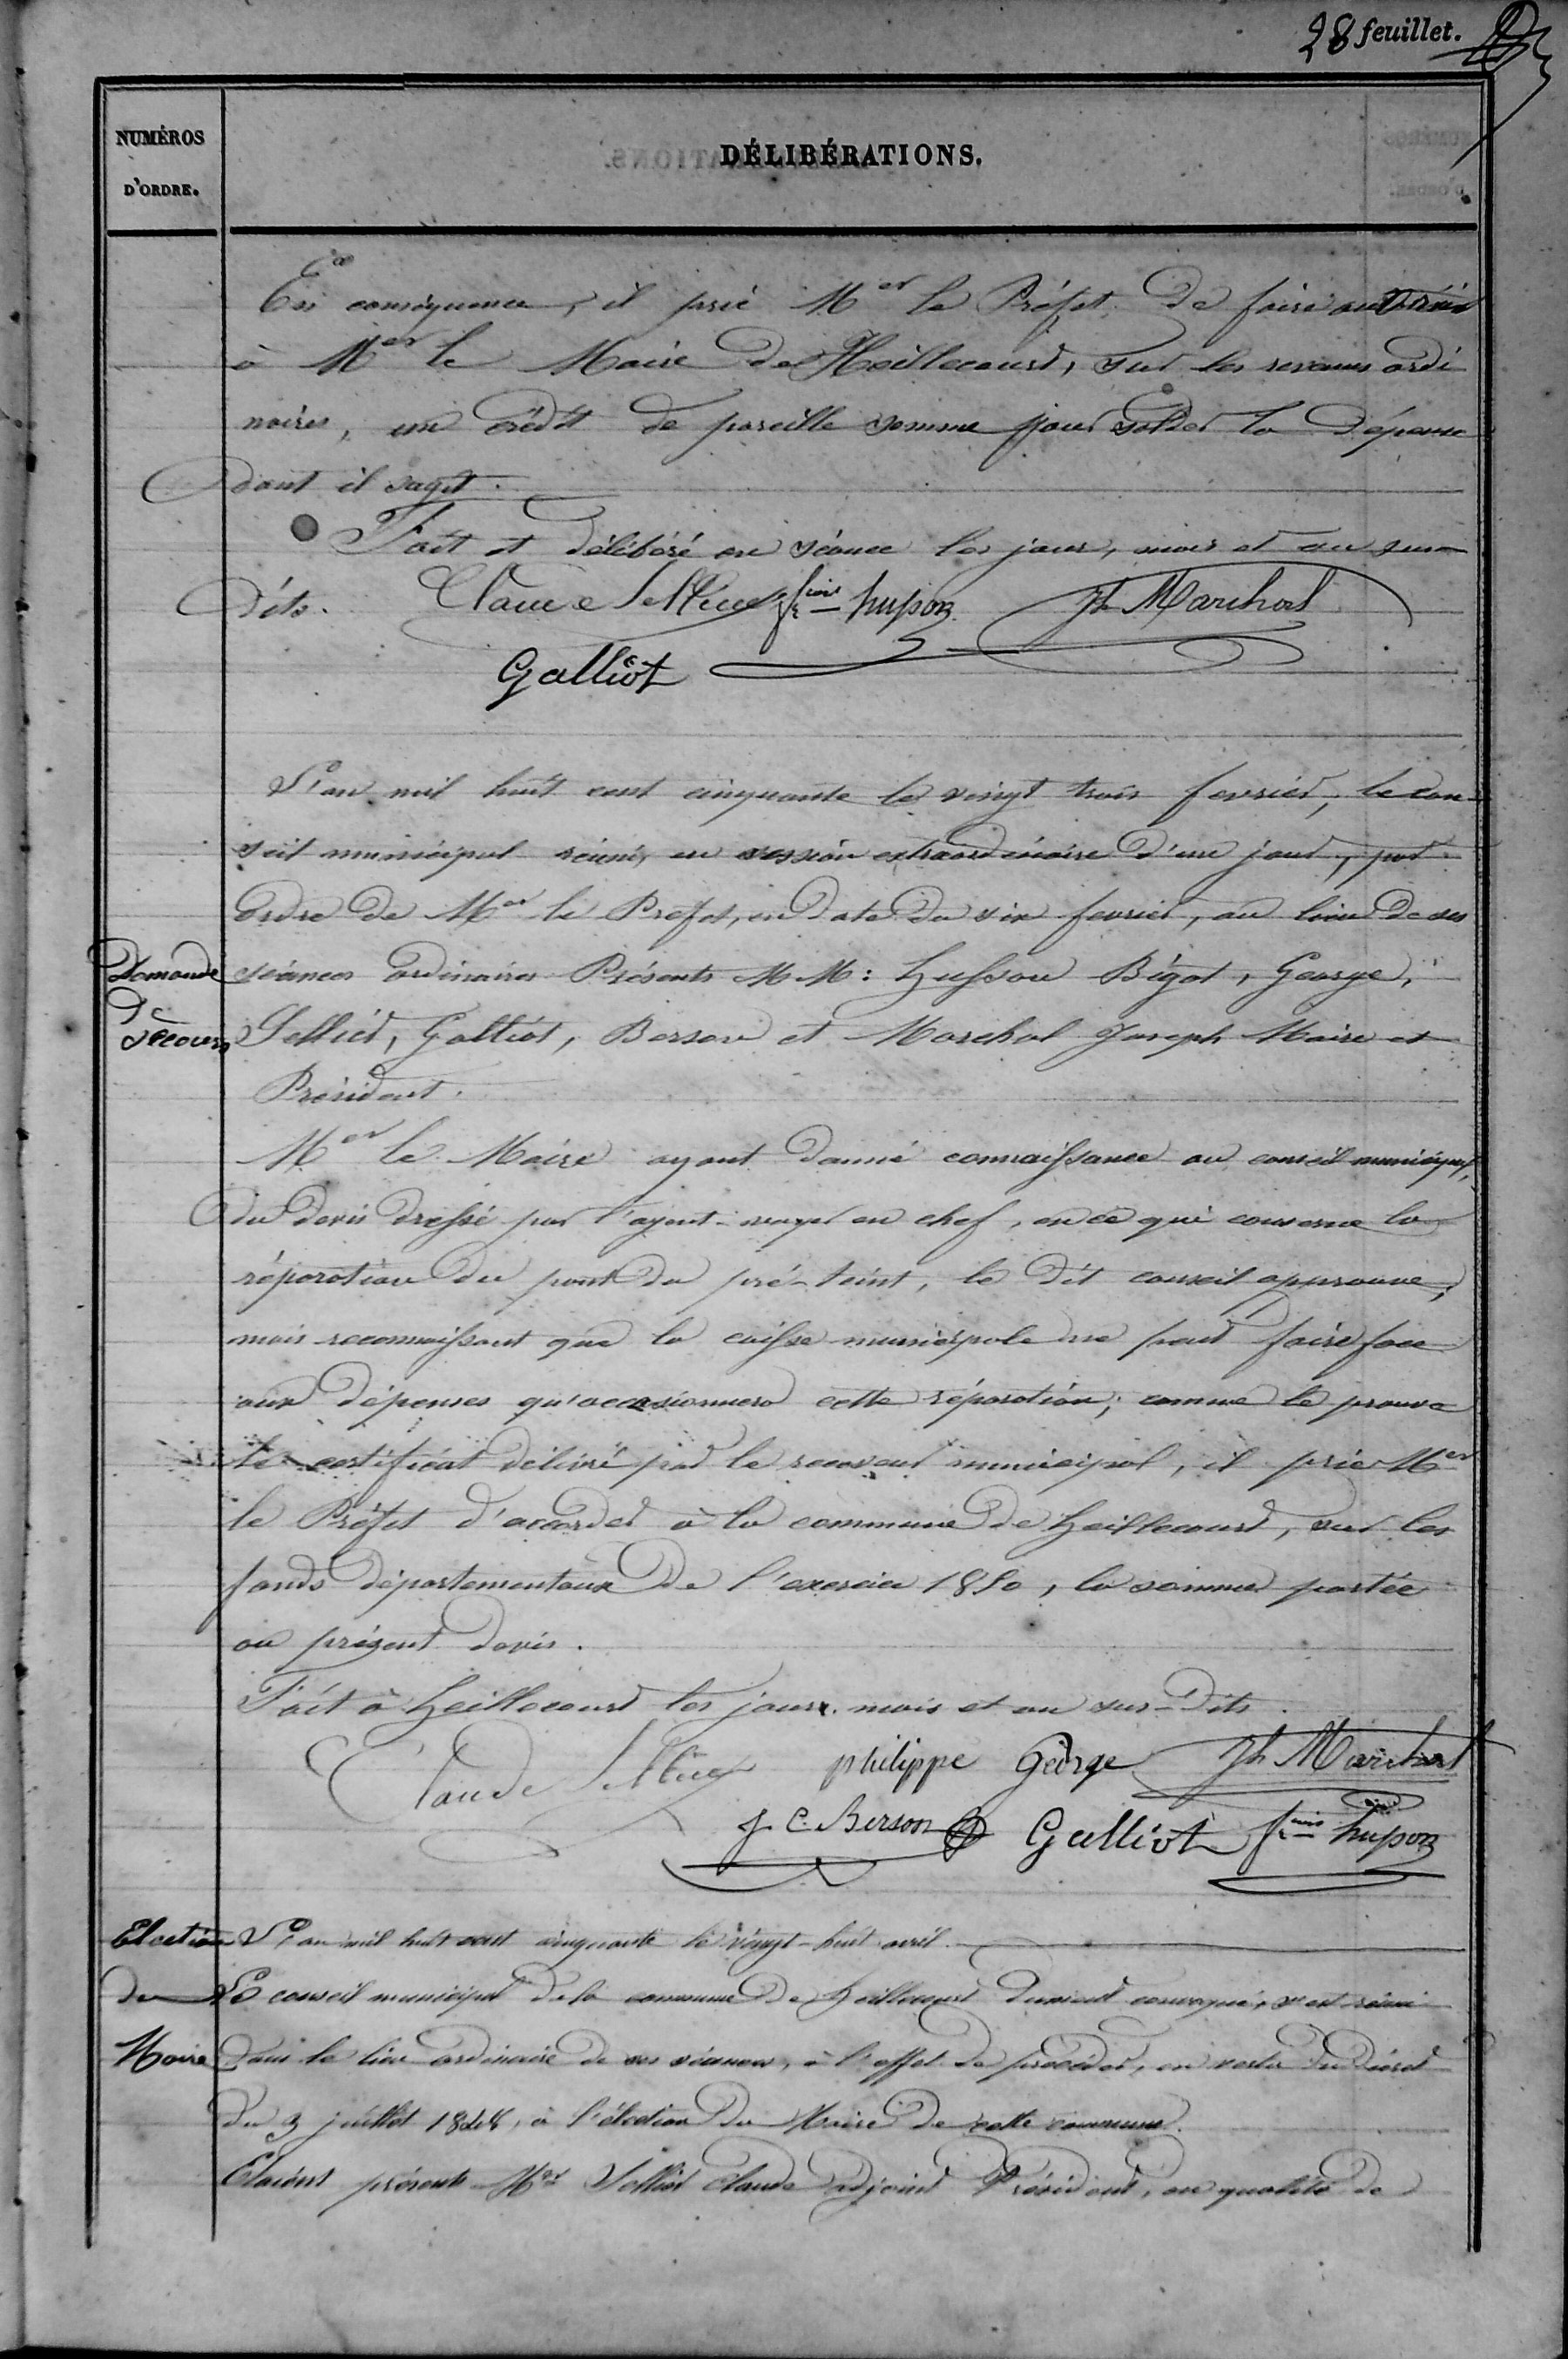 28 feuillet.
NUMÉROS
D'ORDRE.
DÉLIBÉRATIONS.
En conséquence, il prie Mer le Préfet de faire
à Mer le Maire de Heillecourt, sur les revenus ordi
naires, un crédit de pareille somme pour solder la dépense
dont il sagit.
Fait et délibéré en séance les jour, mois et an sus
dits. Claude Sellier fcois husson Jh Marchal
Galliot
L'an mil huit cent cinquante le vingt trois fevrier, le con-
seil municipal réuni, en session extraordinaire d'un jour, par
ordre de Mer le Préfet, en date du six fevrier, au lieu de ses
Demande
de
secours
séances ordinaires Présents MM: Husson Bigot, George,
Sellier, Galliot, Berson et Marchal Joseph Maire et
Président.
Mer le Maire ayant donné connaissance au conseil municipal,
du devis dressé par l'agent-voyer en chef, en ce qui concerne la
réparation du pont du pré-teint, le dit conseil approuve;
mais reconnaissant que la caisse municipale ne peut faire face
aux dépenses qu'occasionnera cette réparation; comme le prouve
le certificat délivré par le receveur municipal, il prie Mer
le Préfet d'accorder à la commune de heillecourt, sur les
fonds départementaux de l'exercice 1850, la somme portée
au présent devis.
Fait à heillecourt les jour, mois et an sus-dits.
Claude Sellier philippe George Jh Marchal
J C. Berson Galliot fcois husson
Election
du
Maire
L'an mil huit cent cinquante le vingt-huit avril.
Le conseil municipal de la commune de heillecourt dument convoqué, s'est réuni
dans le lieu ordinaire de ses séances, à l'effet de procéder, en vertu du décret
du 3 juillet 1848, à l'élection du Maire de cette commune.
Etaient présents Mer Sellier Claude adjoint Président, en qualité de